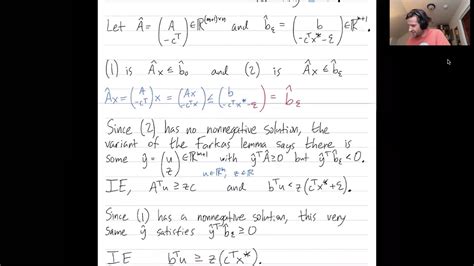 Let Â = (A / -cᵀ) ∈ ℝ^((m+1)×n) and b̂_ε = (b / -cᵀx*-ε) ∈ ℝ^(m+1)
(1) is Âx ≤ b̂₀ and (2) is Âx ≤ b̂_ε
Âx = (A / -cᵀ)x = (Ax / -cᵀx) ≤ (b / -cᵀx*-ε) = b̂_ε
Since (2) has no nonnegative solution, the
variant of the Farkas lemma says there is
some ŷ = (u / z) ∈ ℝ^(m+1) with ŷᵀÂ ≥ 0 but ŷᵀb̂_ε < 0.
u ∈ ℝᵐ, z ∈ ℝ
IE, Aᵀu ≥ zc and bᵀu < z(cᵀx*+ε).
Since (1) has a nonnegative solution, this very
same ŷ satisfies ŷᵀb̂_ε ≥ 0
IE bᵀu ≥ z(cᵀx*)